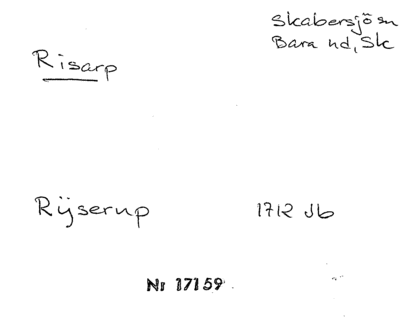 Skabersjö sn
Bara hd, Sk
Risarp
Rÿserup 1712 Jb
Nr 17159